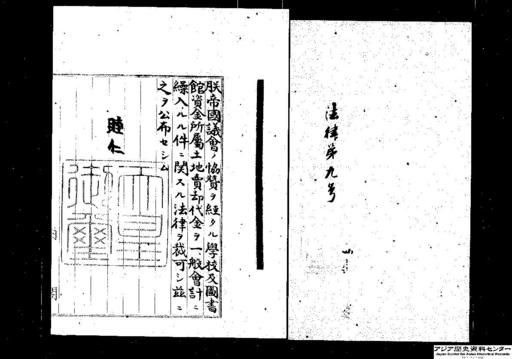 法律第九号
朕帝國議會ノ協贊ヲ經タル學校及圖書
館資金所屬土地賣却代金ヲ一般會計ニ
繰入ルル件ニ関スル法律ヲ裁可シ茲ニ
之ヲ公布セシム
睦仁
天皇
御璽
アジア歴史資料センター
Japan Center for Asian Historical Records